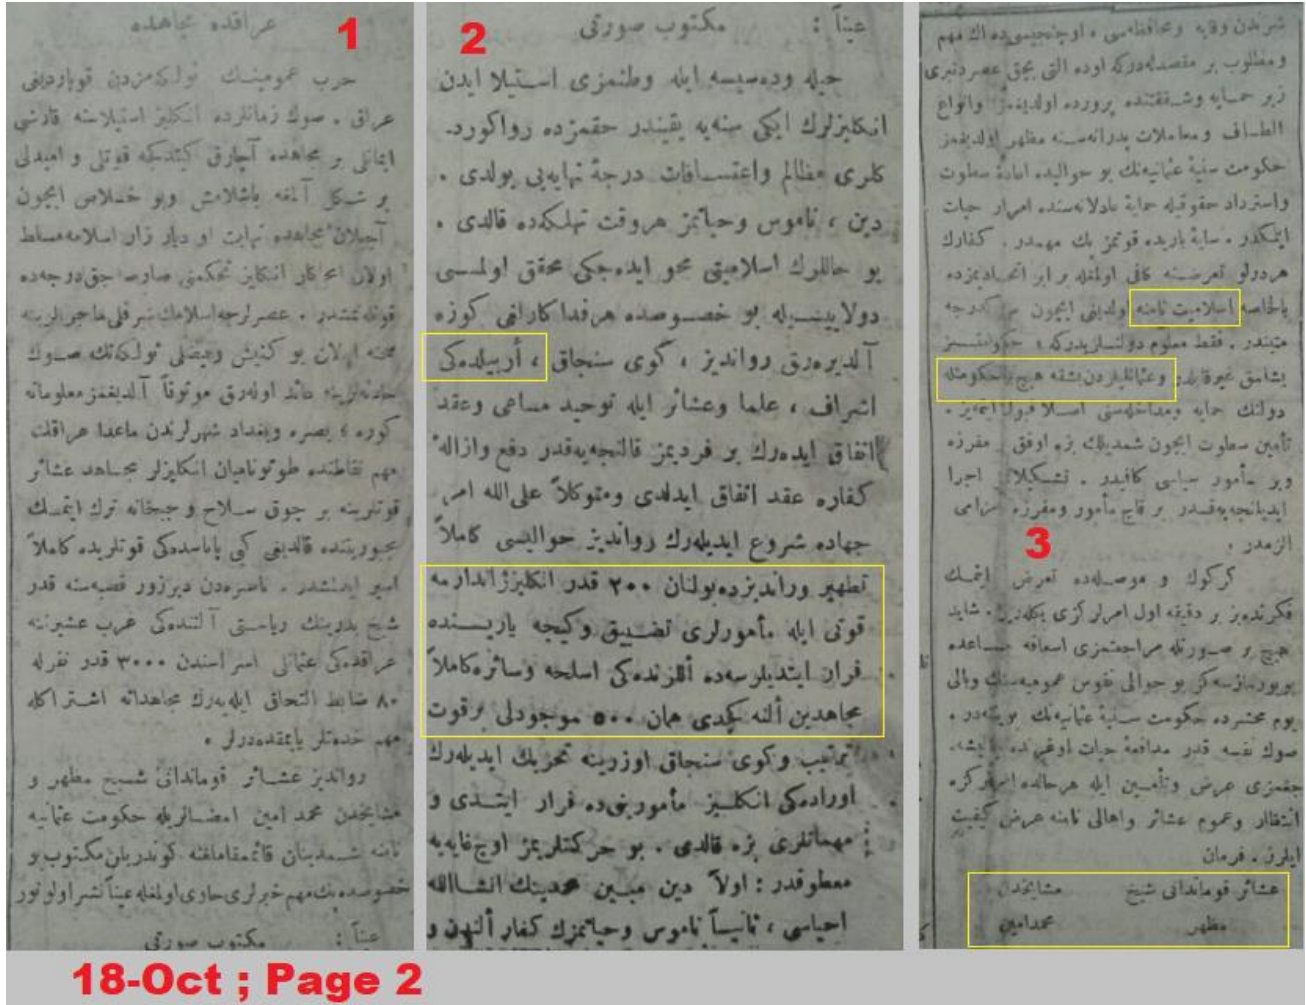 1
عراقده مجاهده
حرب عمومينك تولكه‌مزدن قوپارديغی
عراق ، صوك زمانلرده انكليز استيلاسنه قارشی
ايمانلی بر مجاهده آچارق كيتدكجه قوتلی و اميدلی
بر شكل آلمغه باشلامش وبو خلاص ايچون
آچيلان مجاهده نهايت او ديار زار اسلامه مسلط
اولان انكليز تحكمنی صارصه‌جق درجه‌ده
. عصرلرجه اسلامك شرفلی ماجرالرينه
صحنه اولان بو كنيش وفيضلی تولكه‌نك صوك
عائد اوله‌رق موثوقاً آلديغمز معلوماته
كوره ؛ بصره وبغداد شهرلرندن ماعدا عراقك
مهم نقاطنده طوتونامیان انكليزلر مجاهد عشائر
قوتلرينه بر چوق سلاح و جبخانه ترك ايتمك
مجبوريتنده قالديغی كبی پاپاسده‌كی قوتلريده كاملاً
اسير ايدلمشدر . ناصره‌دن ديرزور قصبه‌سنه قدر
شيخ بدرينك رياستی آلتنده‌كی عرب عشيرتنه
عراقده‌كی عثمانلی اسراسندن ٣٠٠٠ قدر نفرله
٨٠ ضابط التحاق ايله‌يه‌رك مجاهداته اشتراكله
مهم خدمتلر ياپمقده‌درلر .
روانديز عشائر قوماندانی شيخ مظهر و
مشايخدن محمد امين امضالريله حكومت عثمانيه
نامنه شمدينان قائممقاملغنه كوندريلن مكتوب بو
خصوصده پك مهم خبرلری حاوی اولمغله عيناً نشر اولونور
عيناً : مكتوب صورتی
2
عيناً : مكتوب صورتی
حيله ودسيسه ايله وطنمزی استيلا ايدن
انكليزلرك ايكی سنه‌يه يقيندر حقمزده رواكورد
كلری مظالم واعتسافات درجهٔ نهايه‌يی بولدی .
دين ، ناموس وحياتمز هروقت تهلكه‌ده قالدی .
بو حاللرك اسلاميتی محو ايده‌جكی محقق اولمسی
دولاييسيله بو خصوصده هرفدا كارلغی كوزه
آلديره‌رق روانديز ، كوی سنجاق ، أربيلده‌كی
اشراف ، علما وعشائر ايله توحيد مساعی وعقد
اتفاق ايده‌رك بر فرديمز قالنجه‌يه‌قدر دفع وازالهٔ
كفاره عقد اتفاق ايدلدی ومتوكلاً علی‌الله امر
جهاده شروع ايديله‌رك روانديز حواليسی كاملاً
تطهير وراندیزده بولنان ٢٠٠ قدر انكليز ژاندارمه
قوتی ايله مأمورلری تضييق وكيجه ياريسنده
فرار ايتديلرسه‌ده أللرنده‌كی اسلحه وسائره كاملاً
مجاهدين ألنه كچدی همان ٥٠٠ موجودلی برقوت
ترتيب وكوی سنجاق اوزرينه تحريك ايديله‌رك
اوراده‌كی انكليز مأمورينی‌ده فرار ايتدی و
مهماتلری بزه قالدی . بو حركتلريمز اوچ غايه‌يه
معطوفدر : اولاً دين مبين محمدينك انشاالله
احياسی ، ثانيساً ناموس وحياتمزك كفار ألندن و
شرندن وقايه ومحافظه‌سی ، اوچنجيسی‌ده اك مهم
ومطلوب بر مقصددركه اوده التی يچق عصردنبری
زير حمايه وشفقتنده پرورده اولديغمز وانواع
الطاف ومعاملات پدرانه‌سنه مظهر اولديغمز
حكومت سنيهٔ عثمانيه‌نك بو حواليده اعادهٔ سطوت
واسترداد حقوقيله حمايهٔ عادلانه‌سنده امرار حيات
ايتمكدر . سايهٔ باريده قوتمز پك مهمدر . كفارك
هردرلو تعرضنه كافی اولمغله برابر اتحاديمزده
بالخاصه اسلاميت نامنه اولديغی ايچون درجه
متيندر . فقط معلوم دولتلريدركه ؛ حكومتسز
يشامق غيرقابلدر وعثمانليلردن بشقه هيچ برحكومتله
دولتك حمايه ومداخله‌سنی اصلا قبول ايتمیز .
تأمين سطوت ايچون شمديلك بزه اوفق مفرزه
وبر مأمور سياسی كافيدر . تشكيلات اجرا
ايديلنجه‌يه‌قدر بر قاچ مأمور ومفرزه اعزامی
الزمدر .
3
كركوك و موصله‌ده تعرض ايتمك
فكرنده‌يز بر دقيقه اول امرلركزی بكله‌رز . شايد
هيچ بر صورتله مراجعتمزی اسعافه مساعده
بويورمازسه‌كز بو حوالی نفوس عموميه‌سنك وبالی
يوم محشرده حكومت سنيهٔ عثمانيه‌نك بويننه‌در .
صوك نفسه قدر مدافعهٔ حيات اوغرنده
جغمزی عرض وتأمين ايله هرحالده امرلركزه
انتظار وعموم عشائر واهالی نامنه عرض كيفيت
ايلرز . فرمان
عشائر قوماندانی شيخ مشايخدن
مظهر محمدامين
18-Oct ; Page 2